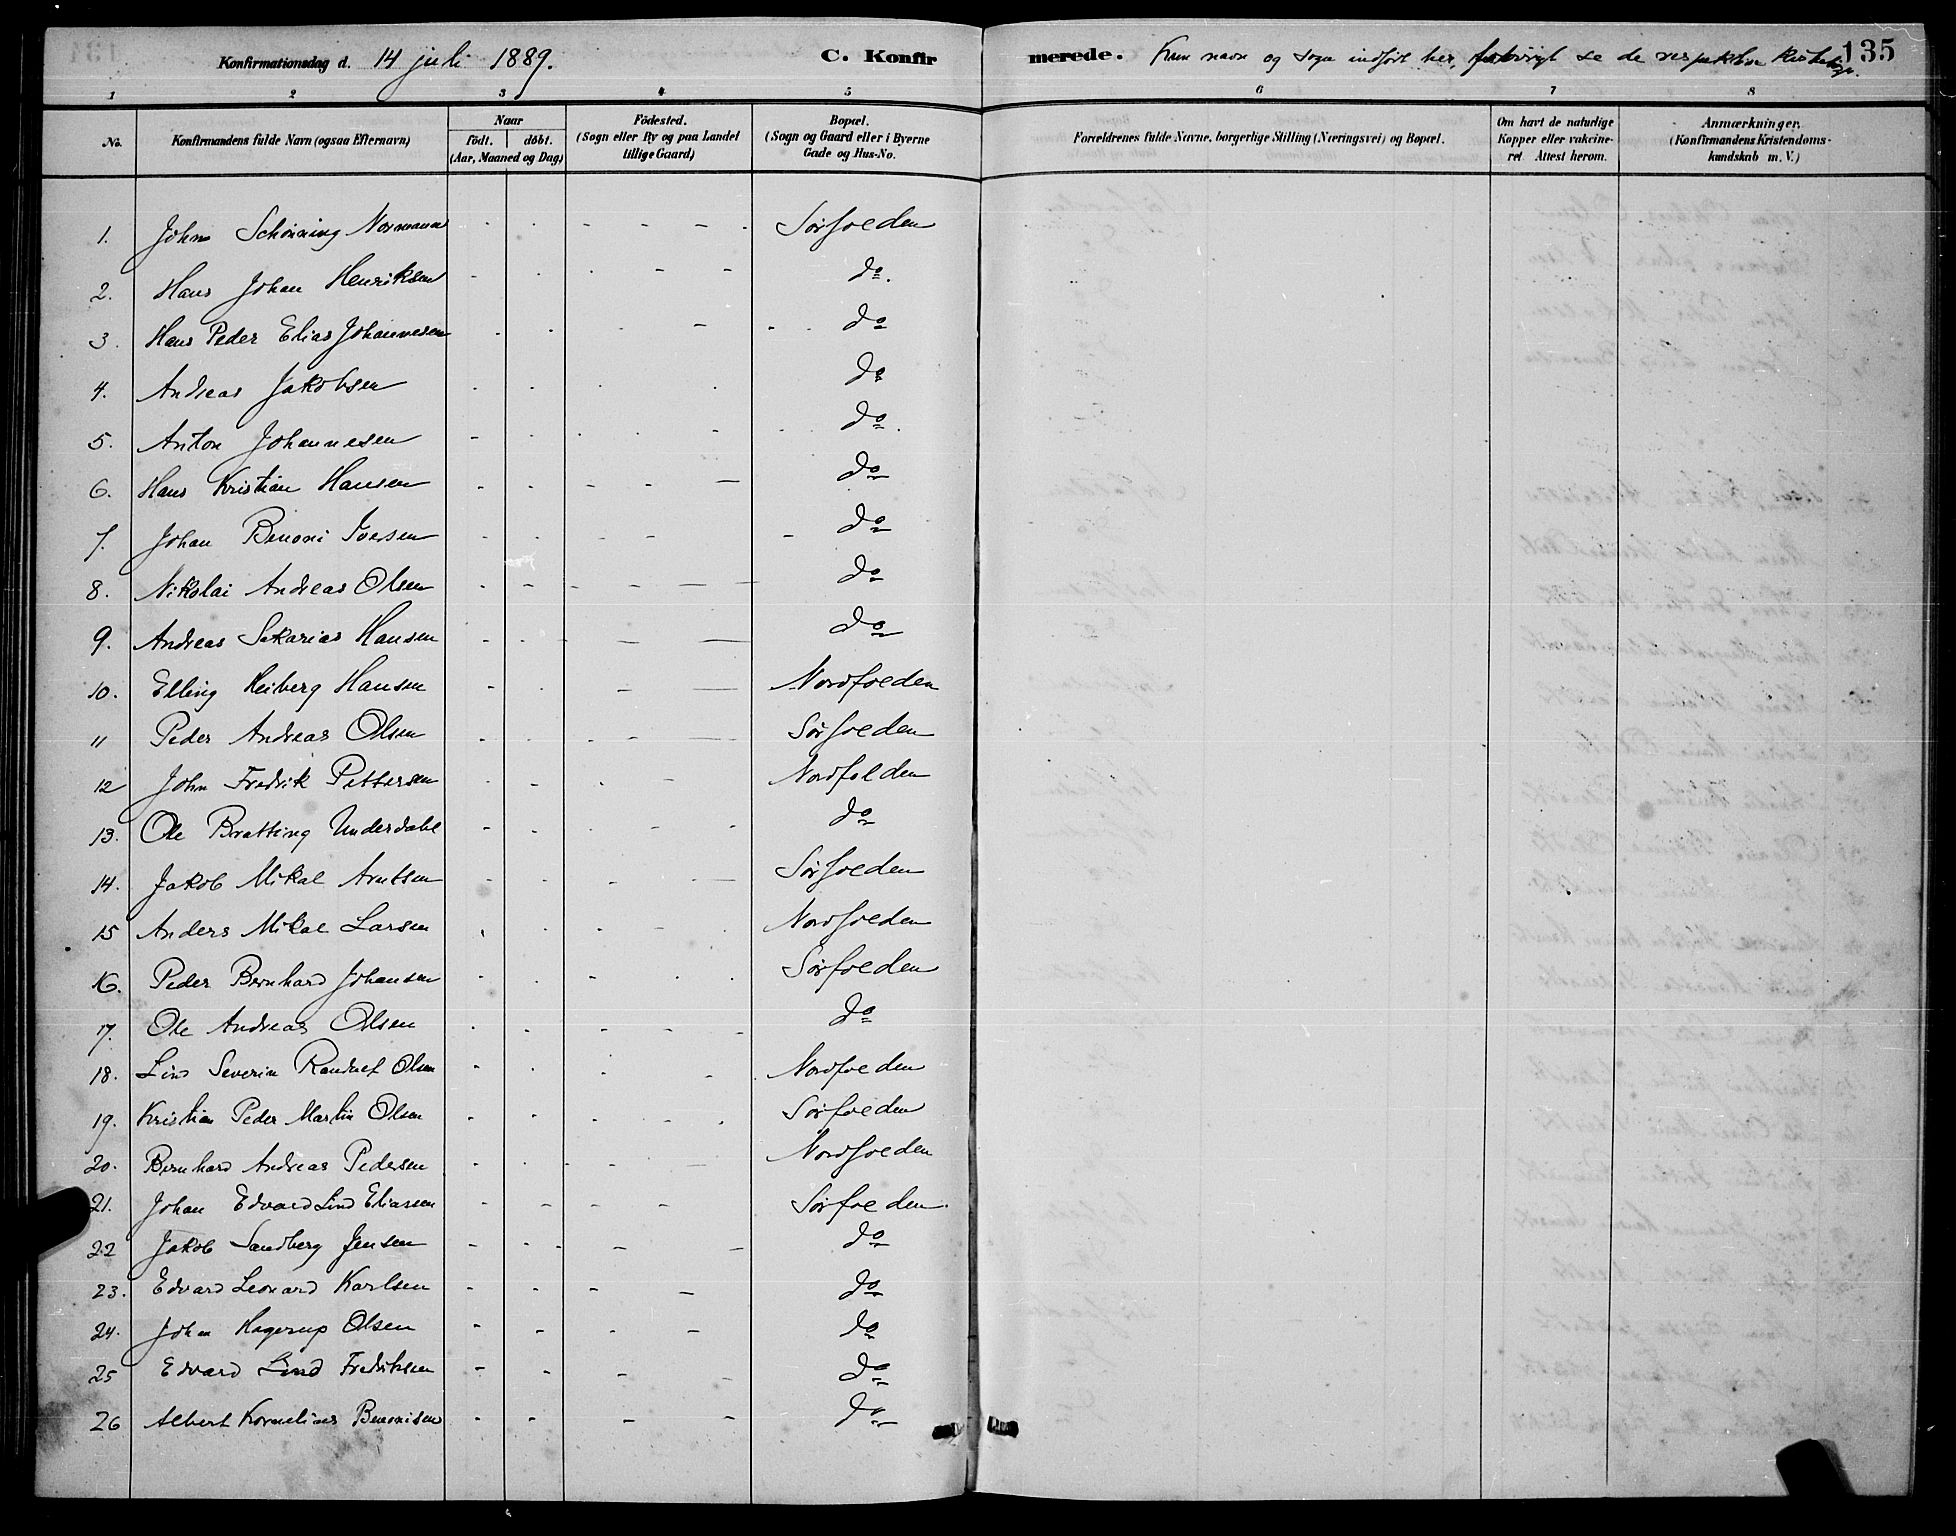 Konfirmationsdag d. 14 juli 1889. C. Konfirmerede. Kun navn og sogn indført her, forøvrigt se de respektive kirkebøger. 135
1 2 3 4 5 6 7 8
No. Konfirmandens fulde Navn (ogsaa Efternavn) Naar födt. döbt. (Aar, Maaned og Dag) Födested. (Sogn eller By og paa Landet tillige Gaard) Bopæl. (Sogn og Gaard eller i Byerne Gade og Hus-No. Forældrenes fulde Navne, borgerlige Stilling (Næringsvei) og Bopæl. Om havt de naturlige Kopper eller vakcineret. Attest herom. Anmærkninger. (Konfirmandens Kristendomskundskab m. V.)
1. Johan Schønning Normann - - - - - Sørfolden
2. Hans Johan Henriksen - - - - - do.
3. Hans Peder Elias Johannesen - - - - - do
4. Andreas Jakobsen - - - - do
5. Anton Johannesen - - - - - do.
6. Hans Kristian Hansen - - - - - do
7. Johan Benoni Iversen - - - - - do
8. Nikolai Andreas Olsen - - - - - do
9. Andreas Sakarias Hansen - - - - do
10. Elling Heiberg Hansen - - - - Nordfolden
11 Peder Andreas Olsen - - - - - Sørfolden
12 John Fredrik Pettersen - - - - Nordfolden
13. Ole Bratting Underdahl - - - - do
14. Jakob Mikal Arntsen - - - - Sørfolden
15 Anders Mikal Larsen - - - - - Nordfolden
16. Peder Bernhard Johansen - - - - - Sørfolden
17. Ole Andreas Olsen - - - - - do
18. Lind Severin Randulf Olsen - - - - Nordfolden
19. Kristian Peder Martin Olsen - - - - - Sørfolden
20. Bernhard Andreas Pedersen - - - - - Nordfolden
21. Johan Edvard Lind Eliassen - - - - Sørfolden.
22 Jakob Sandberg Jensen - - - - - do
23. Edvard Leonard Karlsen - - - - do
24. Johan Hagerup Olsen - - - - do
25 Edvard Lind Fredriksen - - - - do
26 Albert Kornelius Benonisen - - - - do